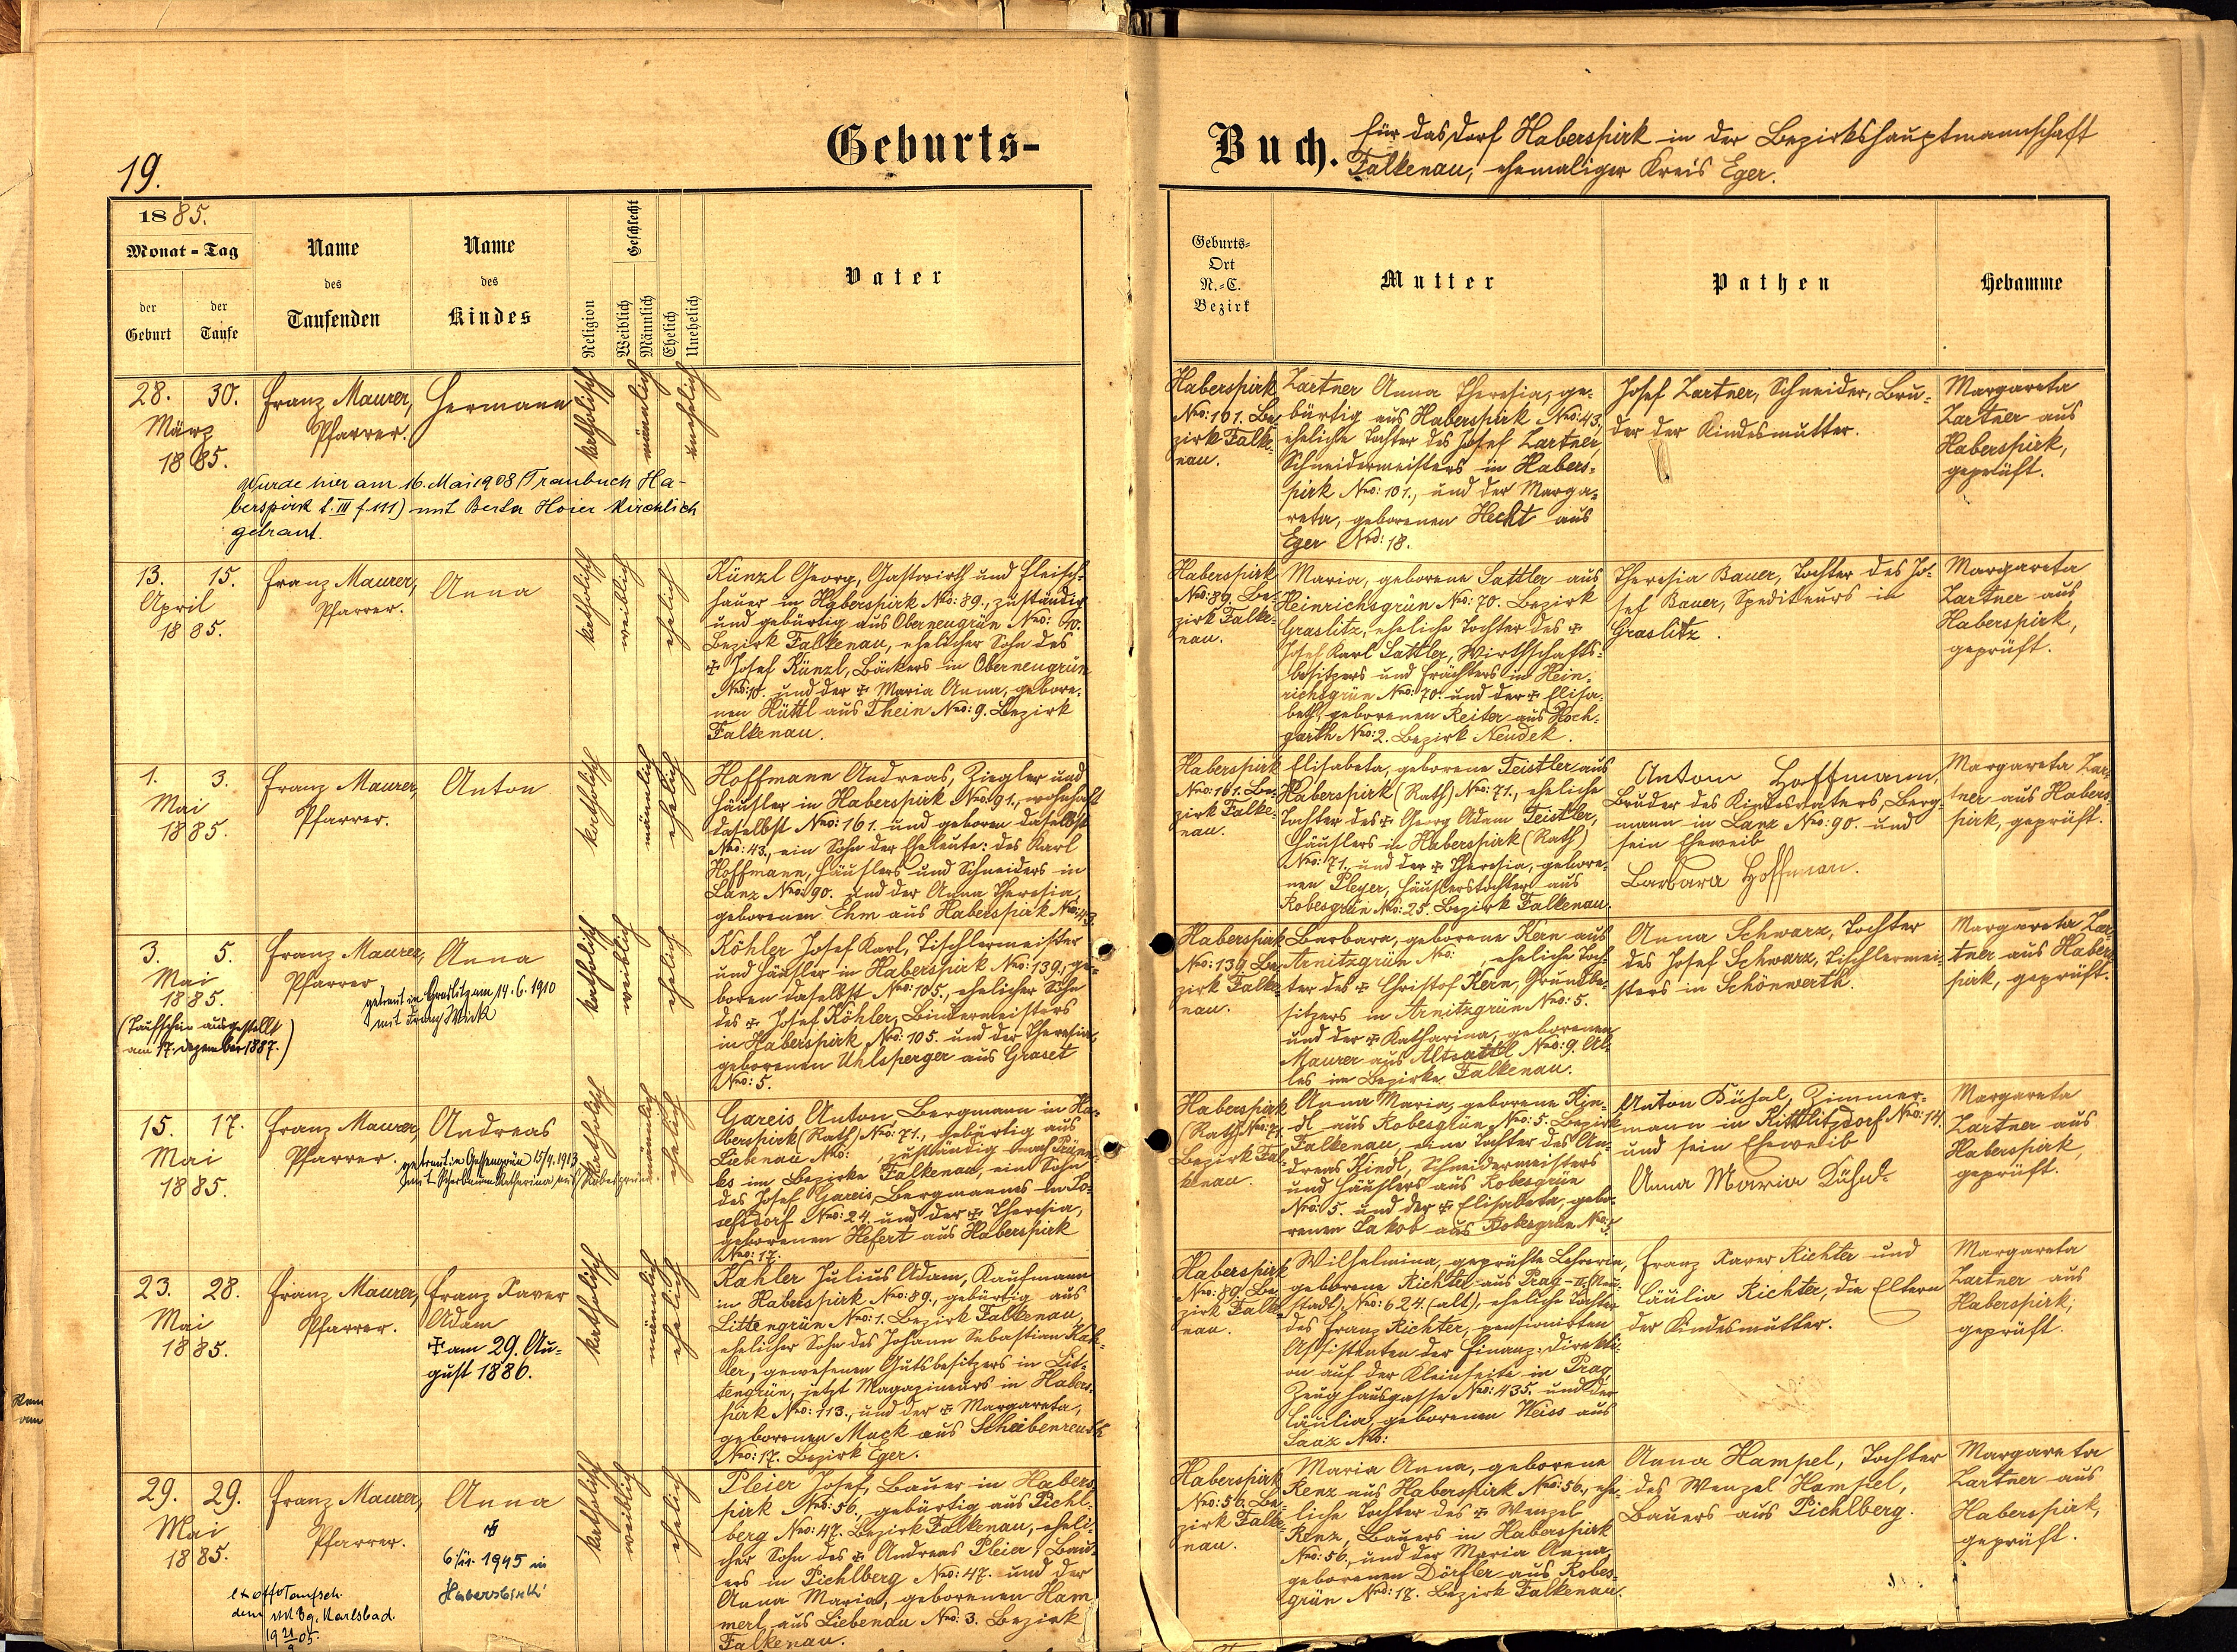 19.
Geburts-
Buch.
für das Dorf Haberspirk in der Bezirkshauptmannschaft
Falkenau, ehemaliger Kreis Eger.
1885.
Monat - Tag
der Geburt
der Taufe
Name
des
Taufenden
Name
des
Kindes
Religion
Geschlecht
Weiblich
Männlich
Ehelich
Unehelich
Vater
Geburts-
Ort
N.-C.
Bezirk
Mutter
Pathen
Hebamme
28. 30.
März
1885.
Franz Maurer,
Pfarrer.
Hermann
katholisch
männlich
unehelich
Wurde hier am 16. Mai 1908 (Traubuch Ha-
berspirk t. III f 111) mit Berta Hoier kirchlich
getraut.
Haberspirk
Nro: 101. Be-
zirk Falke-
nau.
Zartner Anna Theresia, ge-
bürtig aus Haberspirk Nro: 43,
eheliche Tochter des Josef Zartner,
Schneidermeisters in Habers-
pirk Nro: 101., und der Marga-
reta, geborenen Hecht aus
Eger Nro: 18.
Josef Zartner, Schneider, Bru-
der der Kindesmutter.
Margareta
Zartner aus
Haberspirk,
geprüft.
13. 15.
April
1885.
Franz Maurer,
Pfarrer.
Anna
katholisch
weiblich
ehelich
Künzl Georg, Gastwirth und Fleisch-
hauer in Haberspirk Nro: 89., zuständig
und gebürtig aus Oberneugrün Nro: 10.
Bezirk Falkenau, ehelicher Sohn des
✠ Josef Künzl, Bäckers in Oberneugrün
Nro: 10. und der ✠ Maria Anna, gebore-
nen Hüttl aus Thein Nro: 9. Bezirk
Falkenau.
Haberspirk
Nro: 89. Be-
zirk Falke-
nau.
Maria, geborene Sattler aus
Heinrichsgrün Nro: 70. Bezirk
Graslitz, eheliche Tochter des ✠
Josef Karl Sattler, Wirthschafts-
besitzers und Frächters in Hein-
richsgrün Nro: 70. und der ✠ Elisa-
beth, geborenen Reiter aus Hoch-
garth Nro: 2. Bezirk Neudek.
Theresia Bauer, Tochter des Jo-
sef Bauer, Spediteurs in
Graslitz.
Margareta
Zartner aus
Haberspirk,
geprüft.
1. 3.
Mai
1885.
Franz Maurer,
Pfarrer.
Anton
katholisch
männlich
ehelich
Hoffmann Andreas, Ziegler und
Häusler in Haberspirk Nro: 91., wohnhaft
daselbst Nro: 161. und geboren daselbst
Nro: 43., ein Sohn der Eheleute: des Karl
Hoffmann, Häuslers und Schneiders in
Lanz Nro: 90. und der Anna Theresia,
geborenen Ehm aus Haberspirk Nro: 43.
Haberspirk
Nro: 161. Be-
zirk Falke-
nau.
Elisabeta, geborene Feistler aus
Haberspirk (Rath) Nro: 71., eheliche
Tochter des ✠ Georg Adam Feistler,
Häuslers in Haberspirk (Rath)
Nro: 71., und der ✠ Theresia, gebore-
nen Pleyer, Häuslerstochter aus
Robesgrün Nro: 25. Bezirk Falkenau.
Anton Hoffmann,
Bruder des Kindesvaters, Berg-
mann in Lanz Nro: 90. und
sein Eheweib
Barbara Hoffmann.
Margareta Zar-
tner aus Habers-
pirk, geprüft.
3. 5.
Mai
1885.
(Taufschein ausgestellt
am 17. Dezember 1887.)
Franz Maurer,
Pfarrer
Anna
getraut in Graslitz am 14. 6. 1910
mit Franz
katholisch
weiblich
ehelich
Köhler Josef Karl, Tischlermeister
und Häusler in Haberspirk Nro: 139., ge-
boren daselbst Nro: 105., ehelicher Sohn
des ✠ Josef Köhler, Bindermeisters
in Haberspirk Nro: 105. und der Theresia,
geborenen Uhlsperger aus Graset
Nro: 5.
Haberspirk
Nro: 139. Be-
zirk Falke-
nau.
Barbara, geborene Kern aus
Arnitzgrün Nro: , eheliche Toch-
ter des ✠ Christof Kern, Grundbe-
sitzers in Arnitzgrün Nro: 5.
und der ✠ Katharina, geborenen
Maurer aus Altsattl Nro: 9. Al-
les im Bezirke Falkenau.
Anna Schwarz, Tochter
des Josef Schwarz, Tischlermei-
sters in Schönwerth.
Margareta Zar-
tner aus Habers-
pirk, geprüft.
15. 17.
Mai
1885.
Franz Maurer,
Pfarrer.
Andreas
getraut in Gossengrün 15/4. 1913
mit Scherbaum Katharina aus Robesgrün
katholisch
männlich
ehelich
Gareis Anton, Bergmann in Ha-
berspirk (Rath) Nro: 71., gebürtig aus
Liebenau Nro: , zuständig nach Prünn-
les im Bezirke Falkenau, ein Sohn
des Josef Gareis, Bergmannes in Jo-
sefsdorf Nro: 24. und der ✠ Theresia,
geborenen Hefert aus Haberspirk
Nro: 17.
Haberspirk
(Rath) Nro: 71.
Bezirk Fal-
kenau.
Anna Maria, geborene Kin-
dl aus Robesgrün Nro: 5. Bezirk
Falkenau, eine Tochter des An-
dreas Kindl, Schneidermeisters
und Häuslers aus Robesgrün
Nro: 5. und der ✠ Elisabeta, gebo-
renen Lakob aus Robesgrün Nro: 5.
Anton Kühnl, Zimmer-
mann in Kittlitzdorf Nro: 14.
und sein Eheweib
Anna Maria Kühnl
Margareta
Zartner aus
Haberspirk,
geprüft.
23. 28.
Mai
1885.
Franz Maurer,
Pfarrer.
Franz Xaver
Adam
✠ am 29. Au-
gust 1886.
katholisch
männlich
ehelich
Kahler Julius Adam, Kaufmann
in Haberspirk Nro: 89., gebürtig aus
Littengrün Nro: 1. Bezirk Falkenau,
ehelicher Sohn des Johann Sebastian Kah-
ler, gewesenen Gutsbesitzers in Lit-
tengrün, jetzt Magazineurs in Habers-
pirk Nro: 113., und der ✠ Margareta,
geborenen Mack aus Scheibenreuth
Nro: 17. Bezirk Eger.
Haberspirk
Nro: 89. Be-
zirk Falke-
nau.
Wilhelmina, geprüfte Lehrerin,
geborene Richter aus Prag-II. (Neu-
stadt) Nro: 624. (alt), eheliche Tochter
des Franz Richter, pensionirten
Assistenten der Finanz-Direkti-
on auf der Kleinseite in Prag,
Zeughausgasse Nro: 435. und der
Cäcilia, geborenen Weiss aus
Saaz Nro:
Franz Xaver Richter und
Cäcilia Richter, die Eltern
der Kindesmutter.
Margareta
Zartner aus
Haberspirk,
geprüft.
29. 29.
Mai
1885.
Franz Maurer,
Pfarrer.
Anna
✠
1945 in
Haberspirk
Taufsch.
dem Karlsbad
katholisch
weiblich
ehelich
Pleier Josef, Bauer in Habers-
pirk Nro: 56., gebürtig aus Pichl-
berg Nro: 47. Bezirk Falkenau, eheli-
cher Sohn des ✠ Andreas Pleier, Bau-
ers in Pichlberg Nro: 47. und der
Anna Maria, geborenen Ham-
merl aus Liebenau Nro: 3. Bezirk
Falkenau.
Haberspirk
Nro: 56. Be-
zirk Falke-
nau.
Maria Anna, geborene
Renz aus Haberspirk Nro: 56., ehe-
liche Tochter des ✠ Wenzel
Renz, Bauers in Haberspirk
Nro: 56., und der Maria Anna,
geborenen Dörfler aus Robes-
grün Nro: 17. Bezirk Falkenau.
Anna Hampel, Tochter
des Wenzel Hampel,
Bauers aus Pichlberg.
Margareta
Zartner aus
Haberspirk,
geprüft.